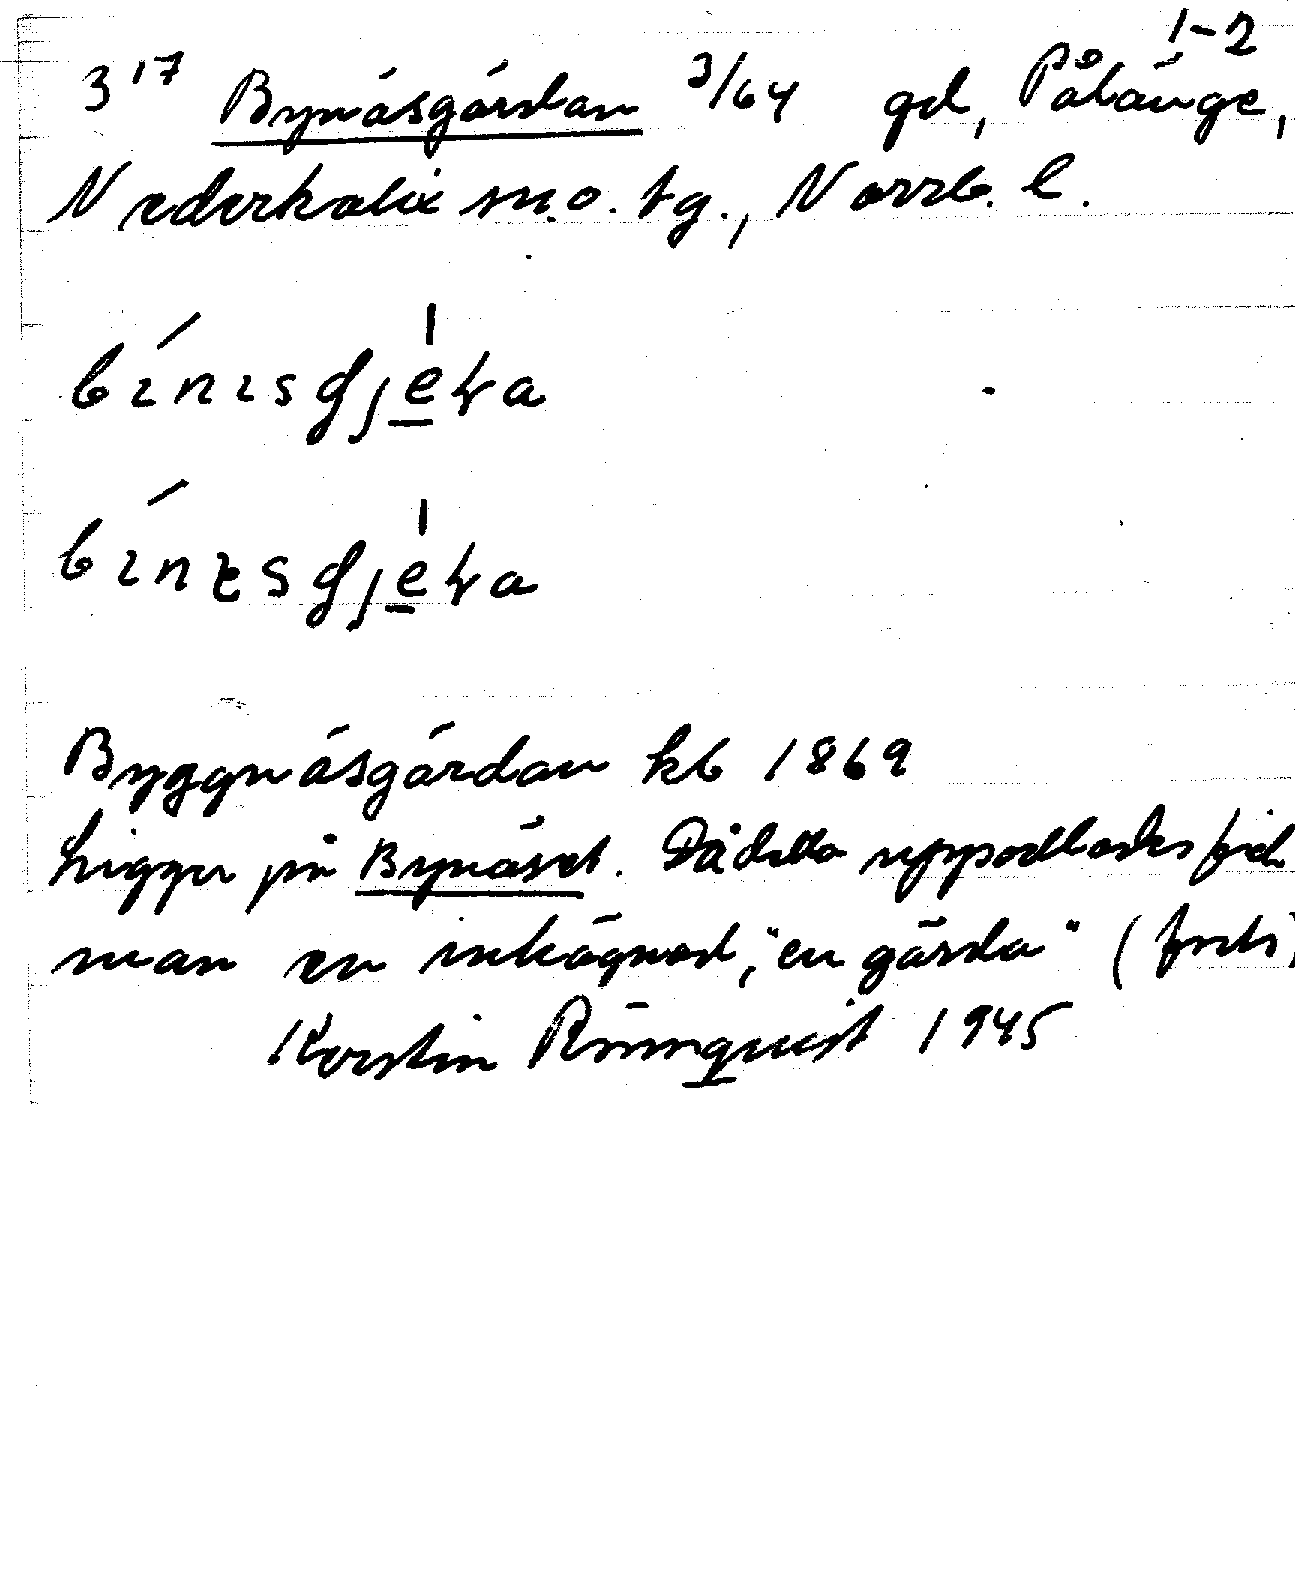 1-2
3 17 Bynäsgärdan 3/64 gd, Pålänge,
Nederkalix sn. o. tg., Norrb. l.
bınısgjeṭa
bınεsgjeṭa
Byggnäsgärdan kb 1869
Ligger på Bynäset. Då detta uppodlades fick
man en inhägnad, "en gärda" (forts)
Kerstin Rönnquist 1945